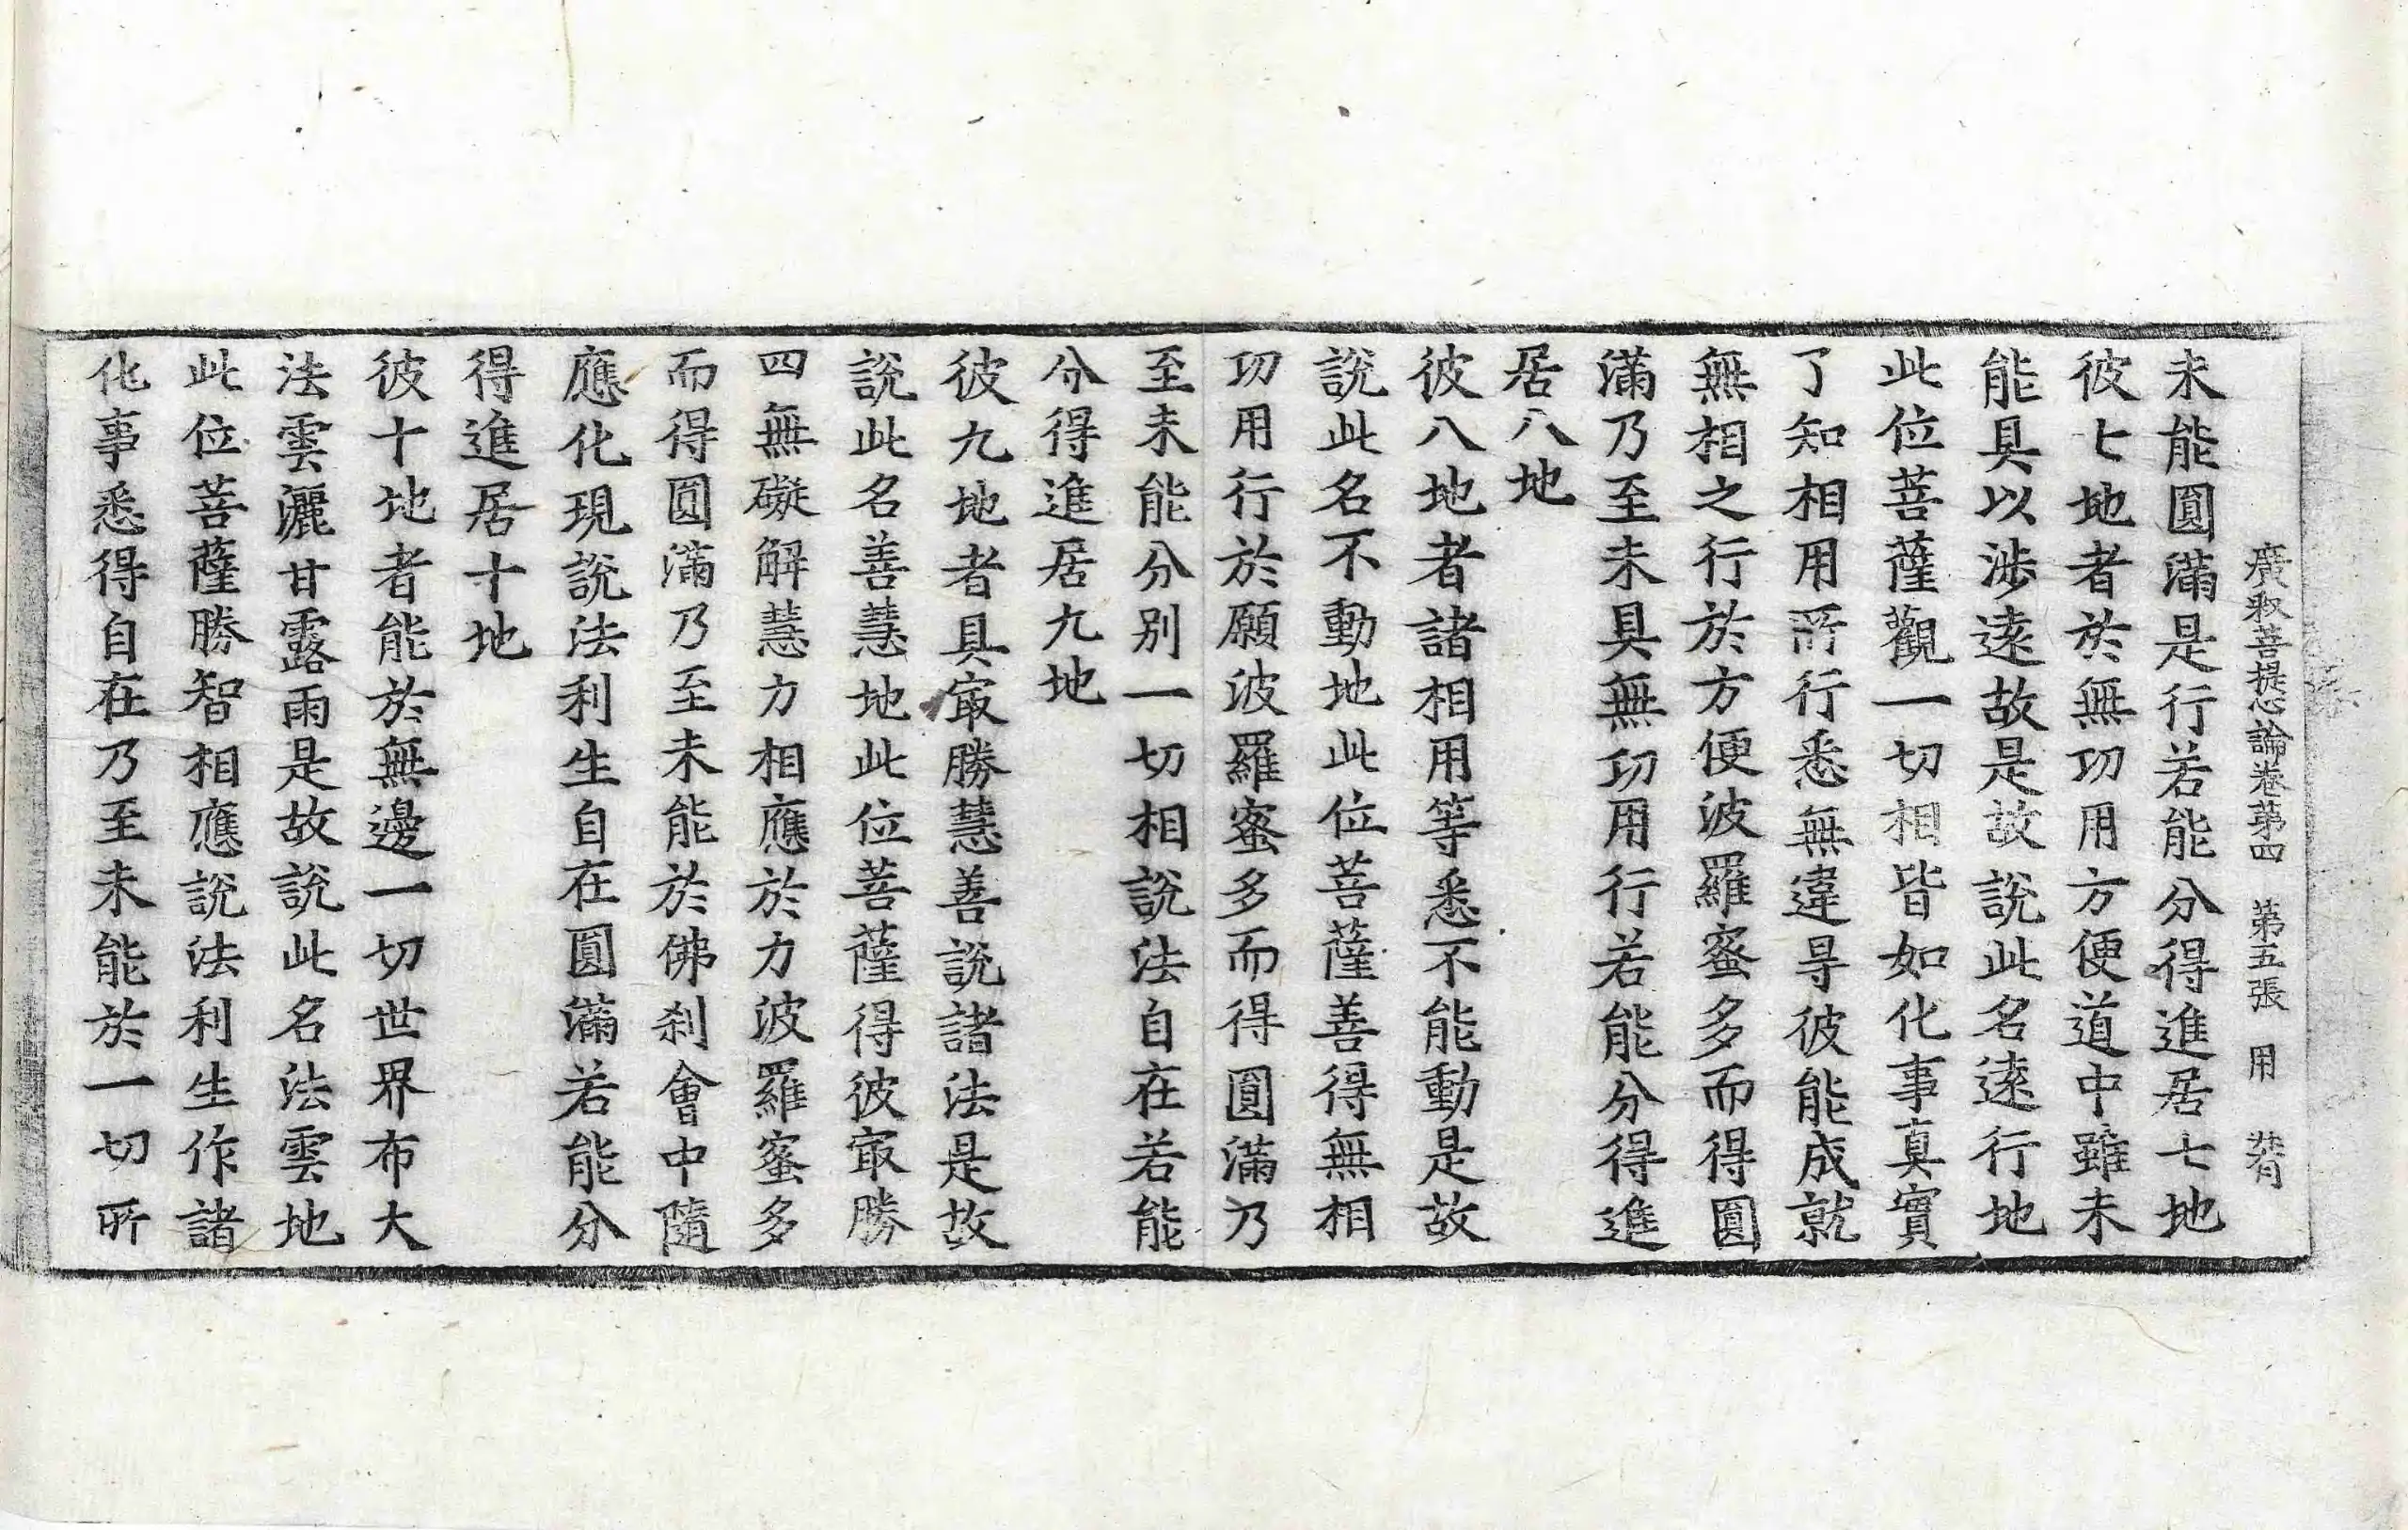 廣㝡菩提心論卷第四　第五張　用
未能圓滿是行若能分得進居七地
彼七地者於無功用方便道中雖未
能具以涉遠故是故說此名遠行地
此位菩薩觀一切相皆如化事真實
了知相用所行悉無違㝵彼能成就
無相之行於方便波羅蜜多而得圓
滿乃至未具無功用行若能分得進
居八地
彼八地者諸相用等悉不能動是故
說此名不動地此位菩薩善得無相
功用行於願波羅蜜多而得圓滿乃
至未能分別一切相說法自在若能
分得進居九地
彼九地者具㝡勝慧善說諸法是故
說此名善慧地此位菩薩得彼㝡勝
四無礙解慧力相應於力波羅蜜多
而得圓滿乃至未能於佛剎會中隨
應化現說法利生自在圓滿若能分
得進居十地
彼十地者能於無邊一切世界布大
法雲灑甘露雨是故說此名法雲地
此位菩薩勝智相應說法利生作諸
化事悉得自在乃至未能於一切所